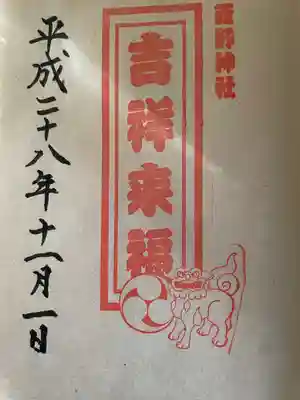 蓮野神社
吉祥来福
平成二十八年十一月一日